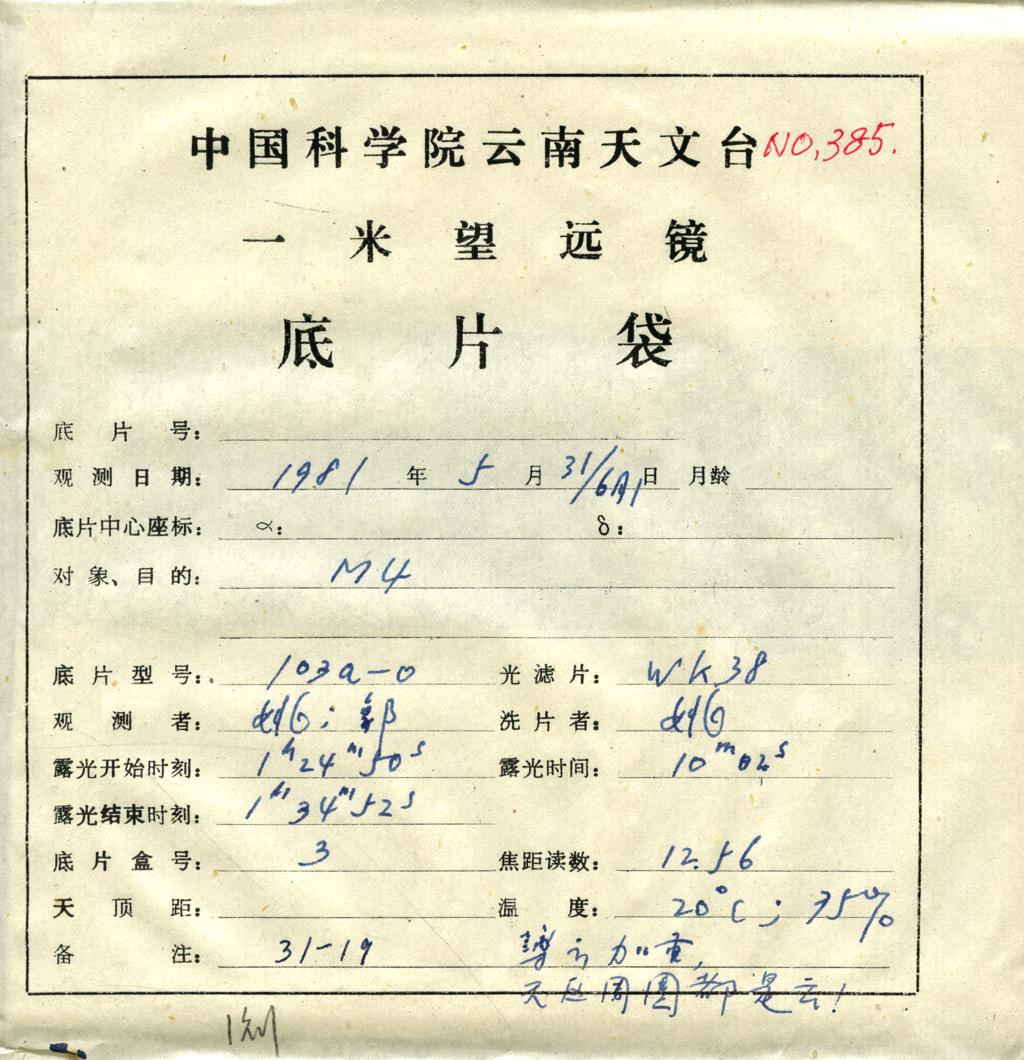 中国科学院云南天文台 NO.385.
一米望远镜
底片袋
底片号:
观测日期: 1981 年 5 月 31/6月1 日 月龄
底片中心座标: α: δ:
对象、目的: M4
底片型号: 103a-O 光滤片: WK38
观测者: 洗片者:
露光开始时刻: 1h24m50s 露光时间: 10m02s
露光结束时刻: 1h34m52s
底片盒号: 3 焦距读数: 12.56
天顶距: 温度: 20°C; 35%
备注: 31-19 云加重,
周围都是云!